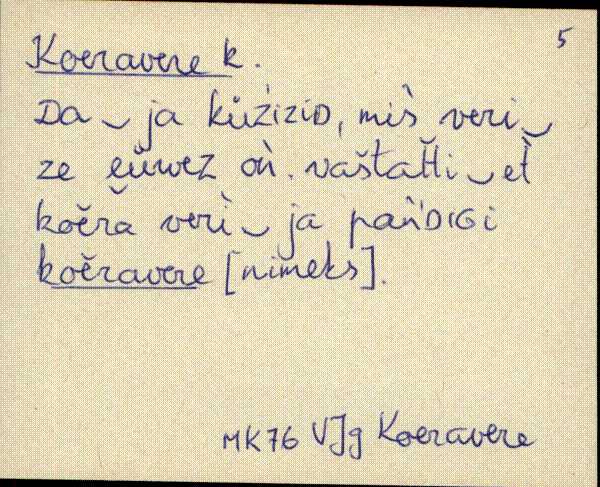 5
Koeravere k.
Da‿ja kùžiziD, miš̀ veri‿
ze eùwez òǹ. vaštatti‿et̀
koĕra veri‿ja pańDiGi
koĕravere [nimeks].
MK76 VJg Koeravere